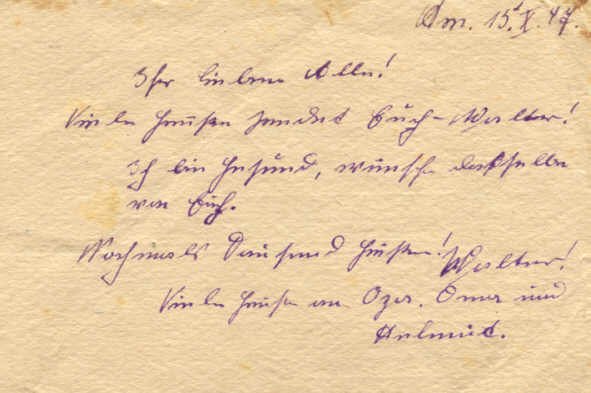 Am. 15. X. 47.
Ihr lieben Alle!
Viele Grüße sendet Euch – Walter!
Ich bin gesund, wünsche dasselbe
von Euch.
Nochmals Tausend Grüße! Walter!
Viele Grüße an Opa. Oma und
Helmut.